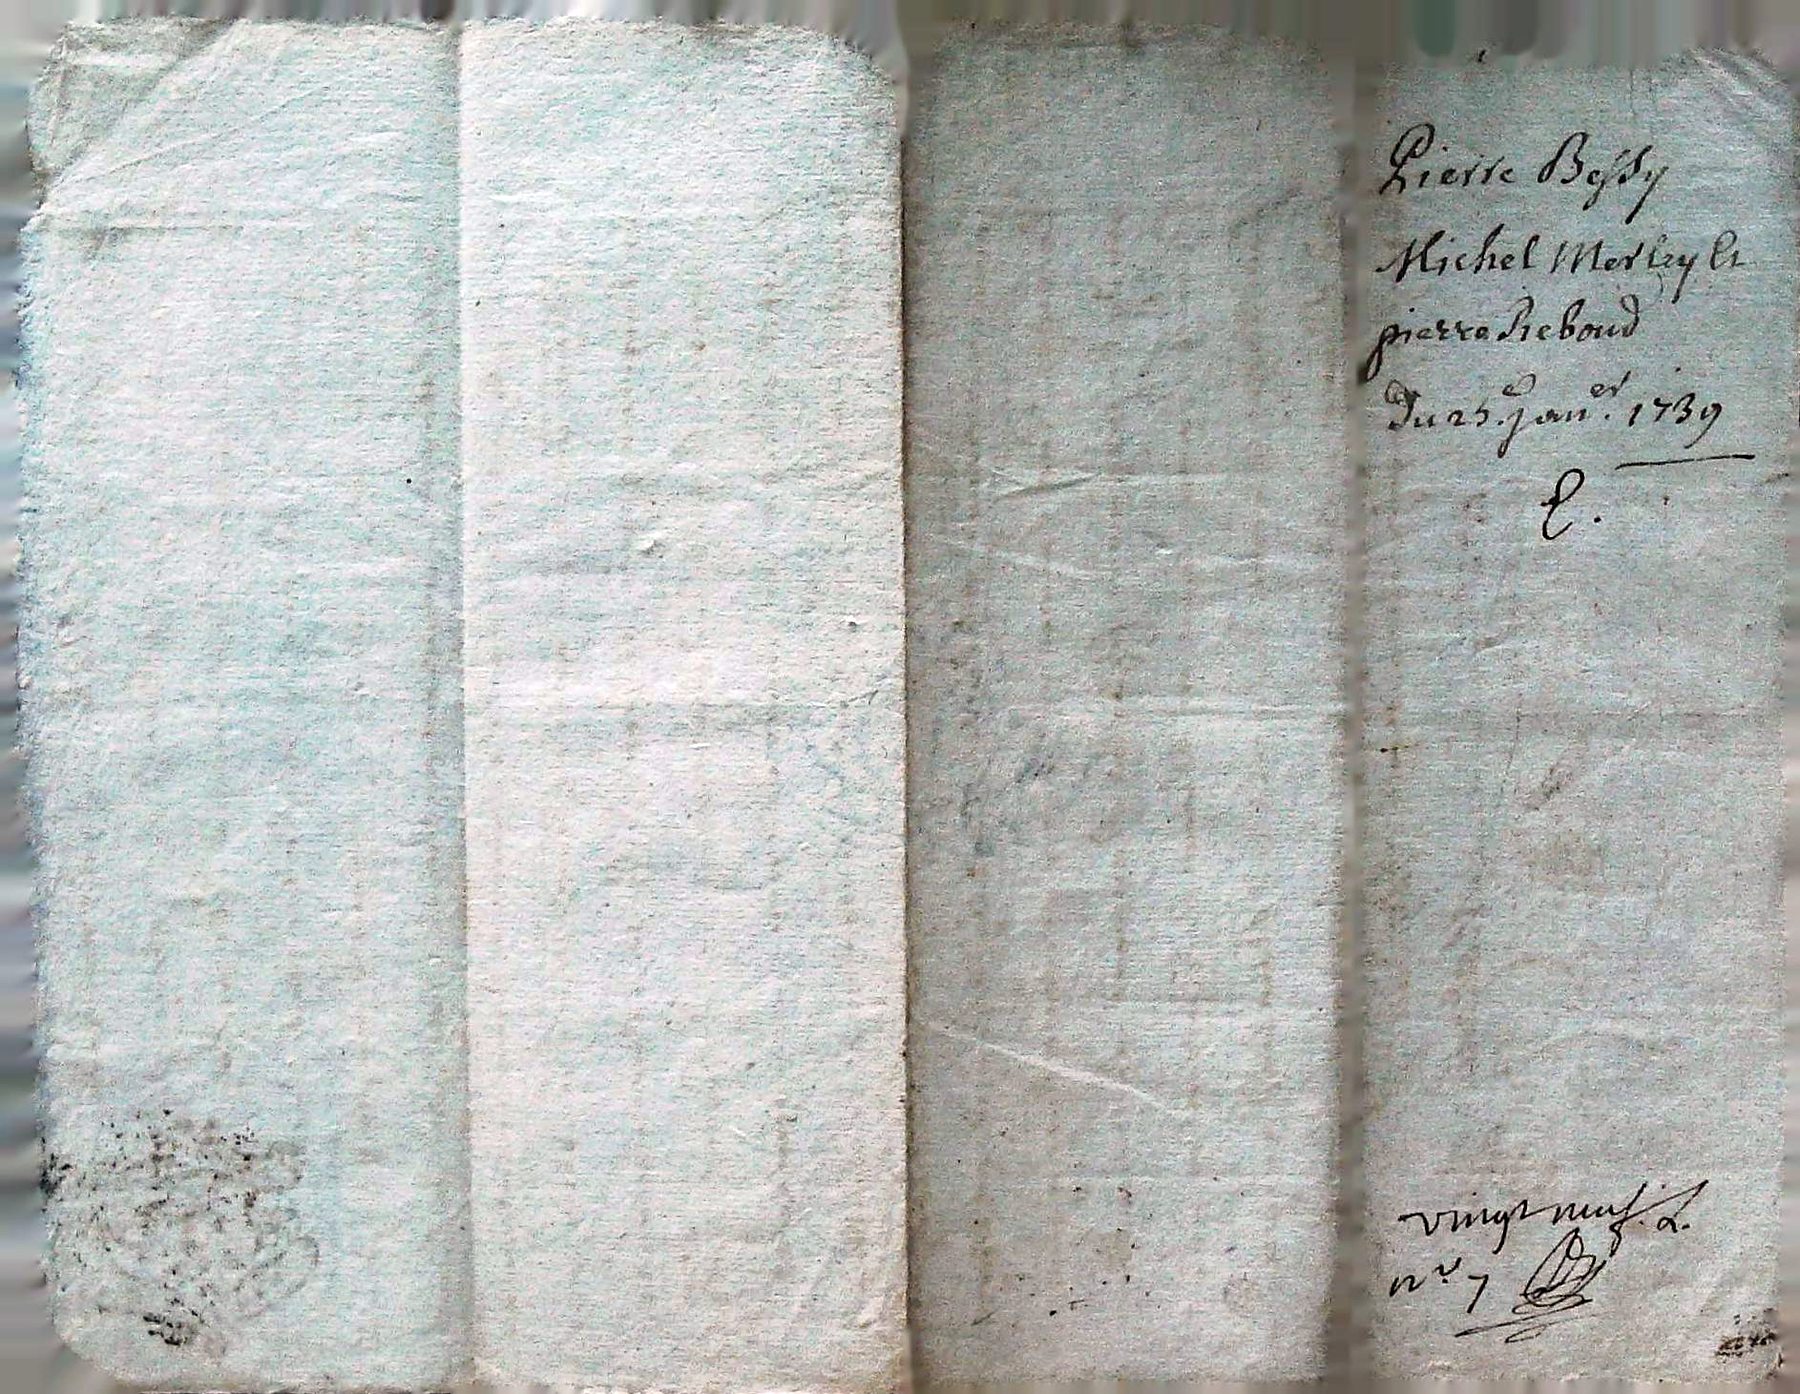 Pierre Bessy
Michel Merley Et
pierre Reboud
du 25.e Jan.er 1739
E.
vingt neuf. L.
n.o 7